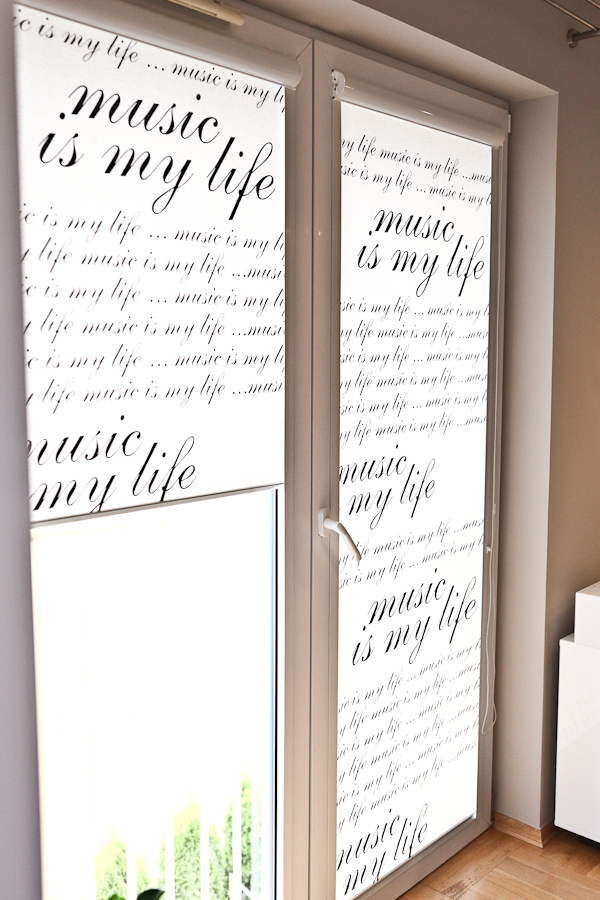 ic is my life ... music is my li
music
is my life
ic is my life ... music is my li
y life music is my life ...musi
ic is my life ... music is my li
y life music is my life ...musi
ic is my life ... music is my li
y life music is my life ...musi
music
my life
my life music is my life ...mus
sic is my life ... music is my l
music
is my life
sic is my life ... music is my l
my life music is my life ...mus
sic is my life ... music is my l
my life music is my life ...mus
sic is my life ... music is my l
my life music is my life ...mus
music
my life
my life music is my life ...mus
sic is my life ... music is my l
music
is my life
sic is my life ... music is my l
my life music is my life ...mus
sic is my life ... music is my l
my life music is my life ...mus
sic is my life ... music is my l
my life music is my life ...mus
music
my life